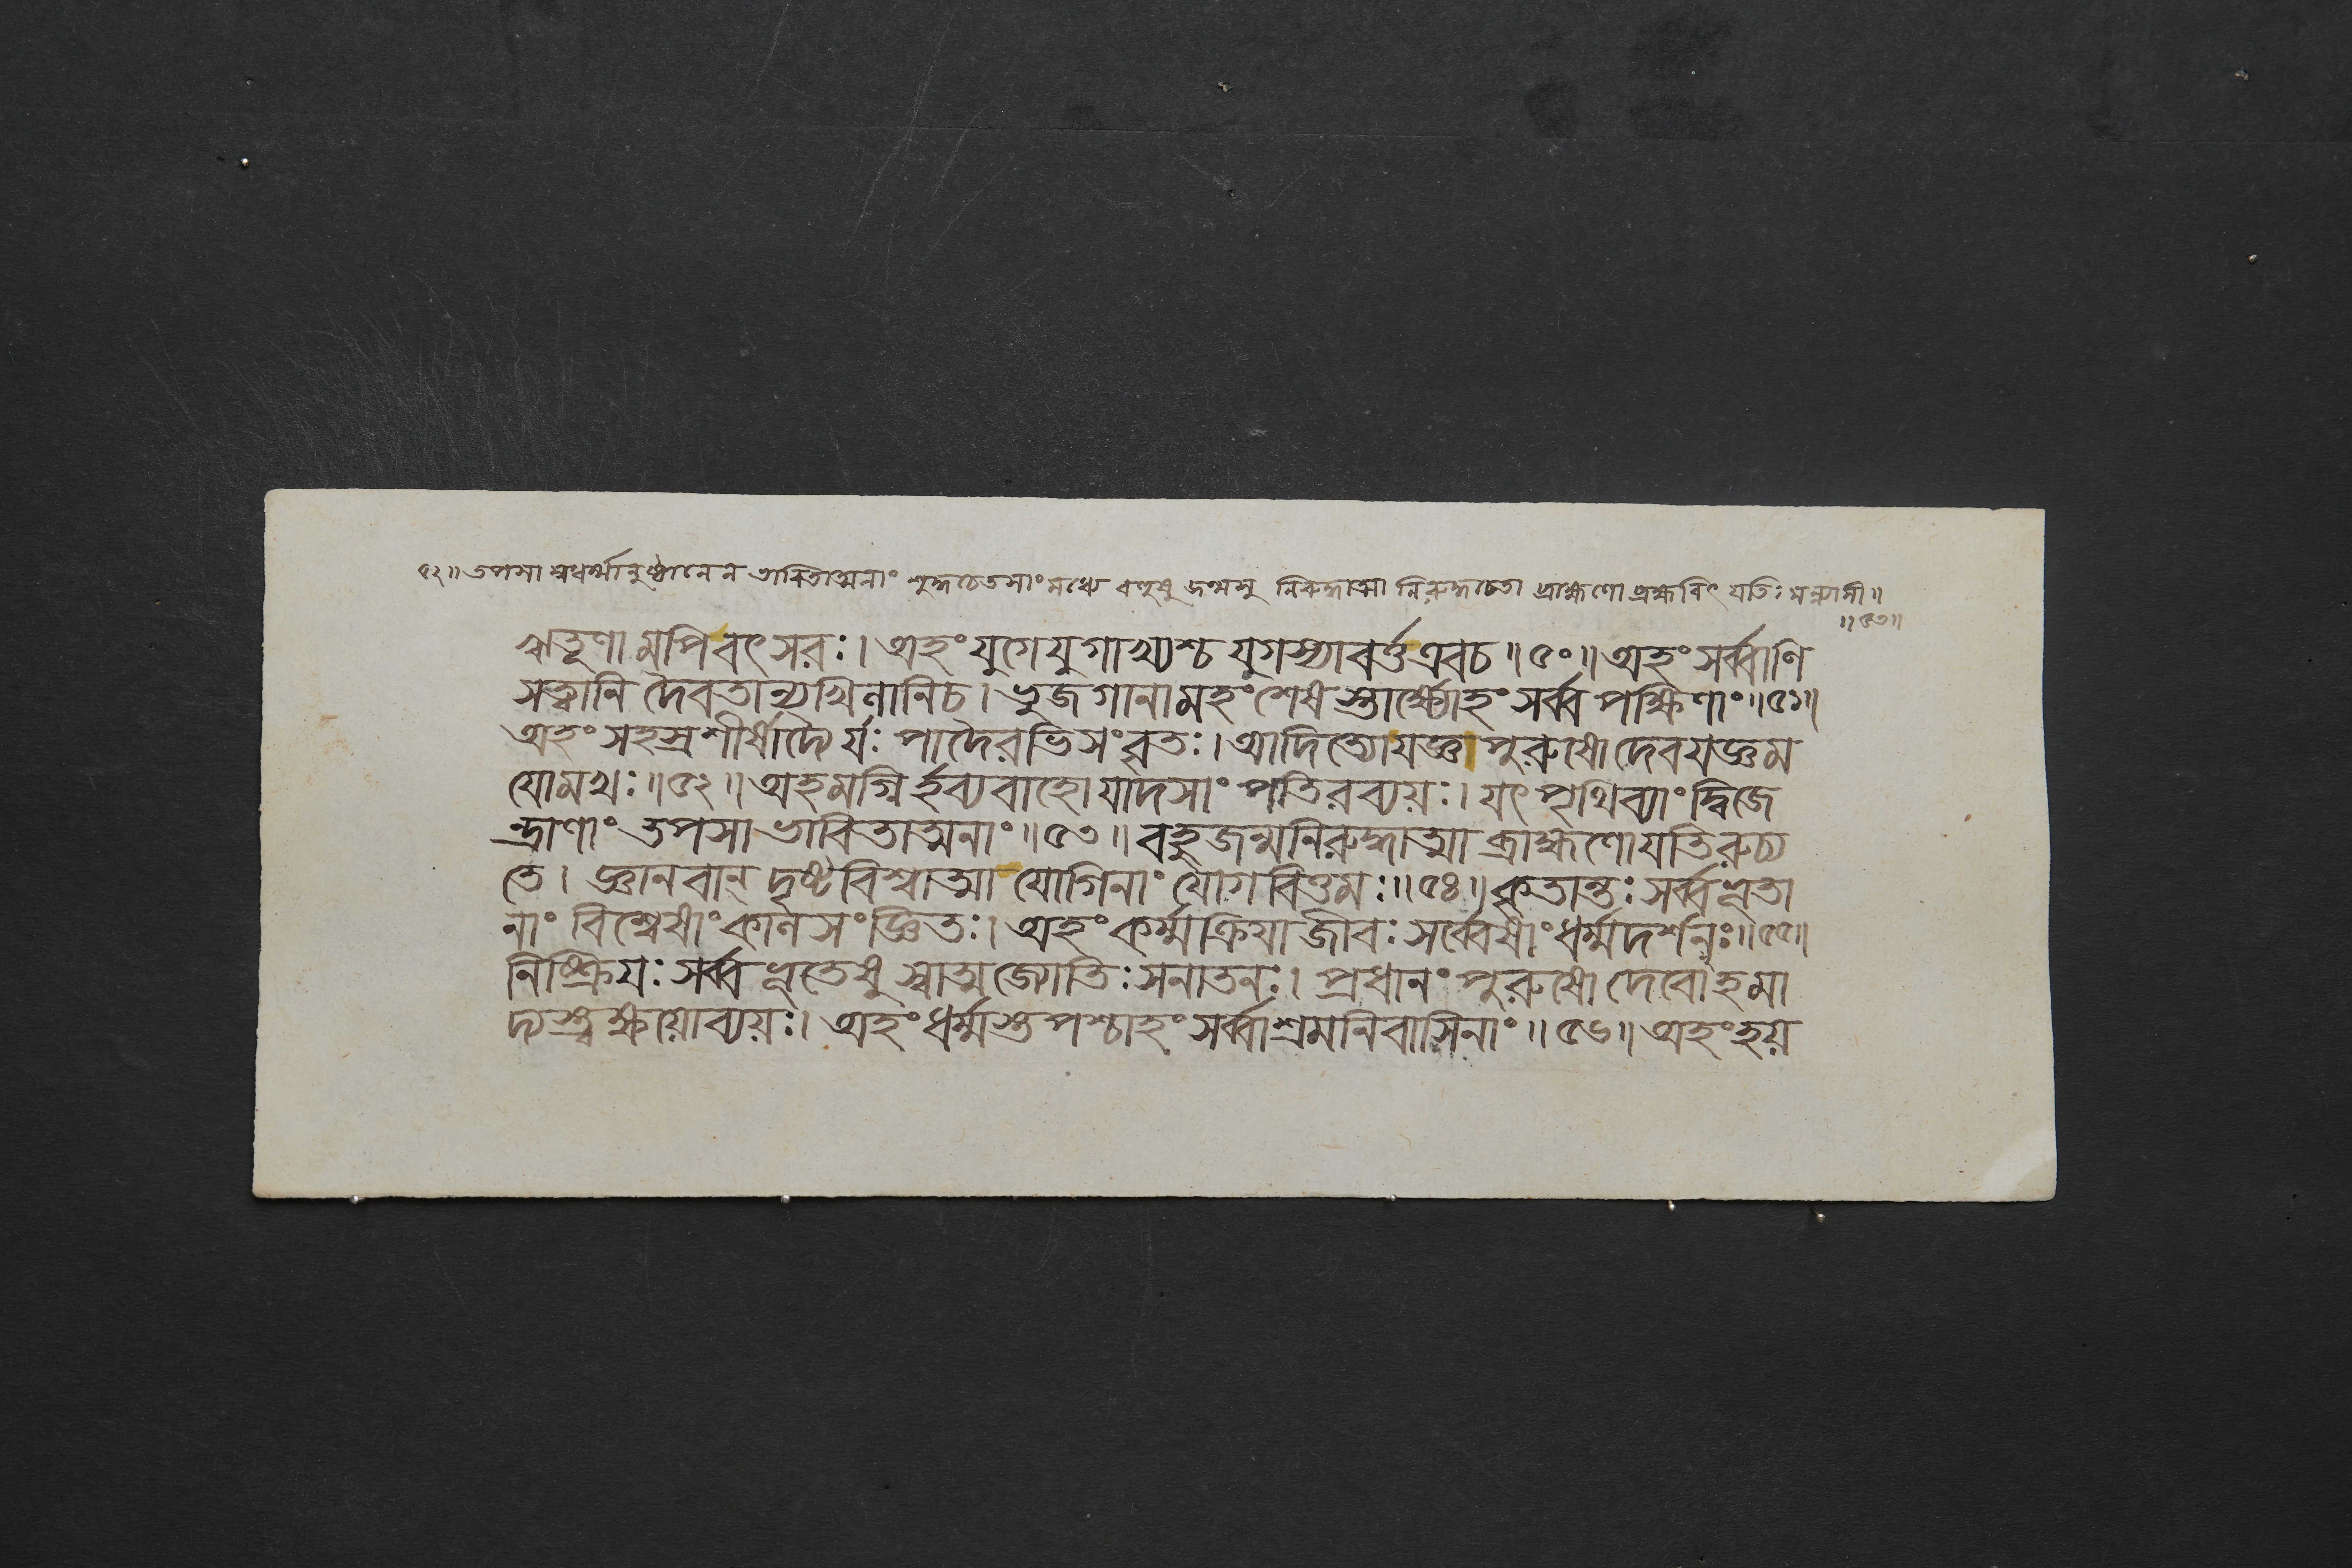 ৫২॥ তপসা স্বধর্ম্মানুষ্ঠানেন ভাবিতাত্মনাং শুদ্ধচেতসাং মধ্যে বহুষু জন্মসু নিরুদ্ধাত্মা নিরুদ্ধচেতা ব্রাহ্মণো ব্রহ্মবিৎ যতিঃ সন্ন্যাসী॥
॥৫৩॥
ঋতূণামপিবৎসরঃ। অহং যুগে যুগাখ্যশ্চ যুগস্যাবর্ত্ত এবচ॥৫০॥ অহং সর্ব্বাণি
সত্ত্বানি দৈবতান্যখিলানিচ। ভুজগানামহং শেষস্তার্ক্ষ্যোহং সর্ব্বপক্ষিণাং॥৫১॥
অহং সহস্রশীর্ষাদ্যৈর্যঃ পাদৈরভিসংবৃতঃ। আদিত্যোযজ্ঞপুরুষো দেবযজ্ঞম
যোমখঃ॥৫২॥ অহমগ্নির্হব্যবাহো যাদসাং পতিরব্যয়ঃ। যৎ পৃথিব্যাং দ্বিজে
ন্দ্রাণাং তপসা ভাবিতাত্মনাং॥৫৩॥ বহুজন্মনিরুদ্ধাত্মা ব্রাহ্মণো যতিরুচ্য
তে। জ্ঞানবান্ দৃষ্টবিশ্বাত্মা যোগিনাং যোগবিত্তমঃ॥৫৪॥ কৃতান্তঃ সর্ব্বভূতা
নাং বিশ্বেষাং কালসংজ্ঞিতঃ। অহং কর্ম্মক্রিয়া জীবঃ সর্ব্বেষাং ধর্ম্মদর্শনঃ॥৫৫॥
নিষ্ক্রিয়ঃ সর্ব্বভূতেষু স্বাত্মজ্যোতিঃ সনাতনঃ। প্রধানং পুরুষো দেবোহমা
দ্যস্ত্বক্ষয়োব্যয়ঃ। অহং ধর্ম্মস্তপশ্চাহং সর্ব্বাশ্রমনিবাসিনাং॥৫৬॥ অহং হয়